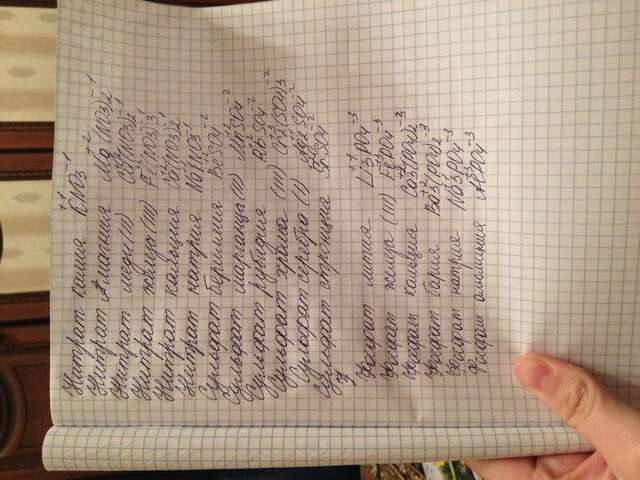 Нитрат калия KNO3
Нитрат магния Mg(NO3)2
Нитрат меди (II) Cu(NO3)2
Нитрат железа (III) Fe(NO3)3
Нитрат кальция Ca(NO3)2
Нитрат натрия NaNO3
Сульфат бериллия BeSO4
Сульфат марганца (II) MnSO4
Сульфат рубидия
Сульфат хрома (III) Cr2(SO4)3
Сульфат серебра (I)
Сульфат стронция SrSO4
3
Фосфат лития Li3PO4
Фосфат железа (III) FePO4
Фосфат кальция Ca3(PO4)2
Фосфат бария Ba3(PO4)2
Фосфат натрия Na3PO4
Фосфат алюминия AlPO4